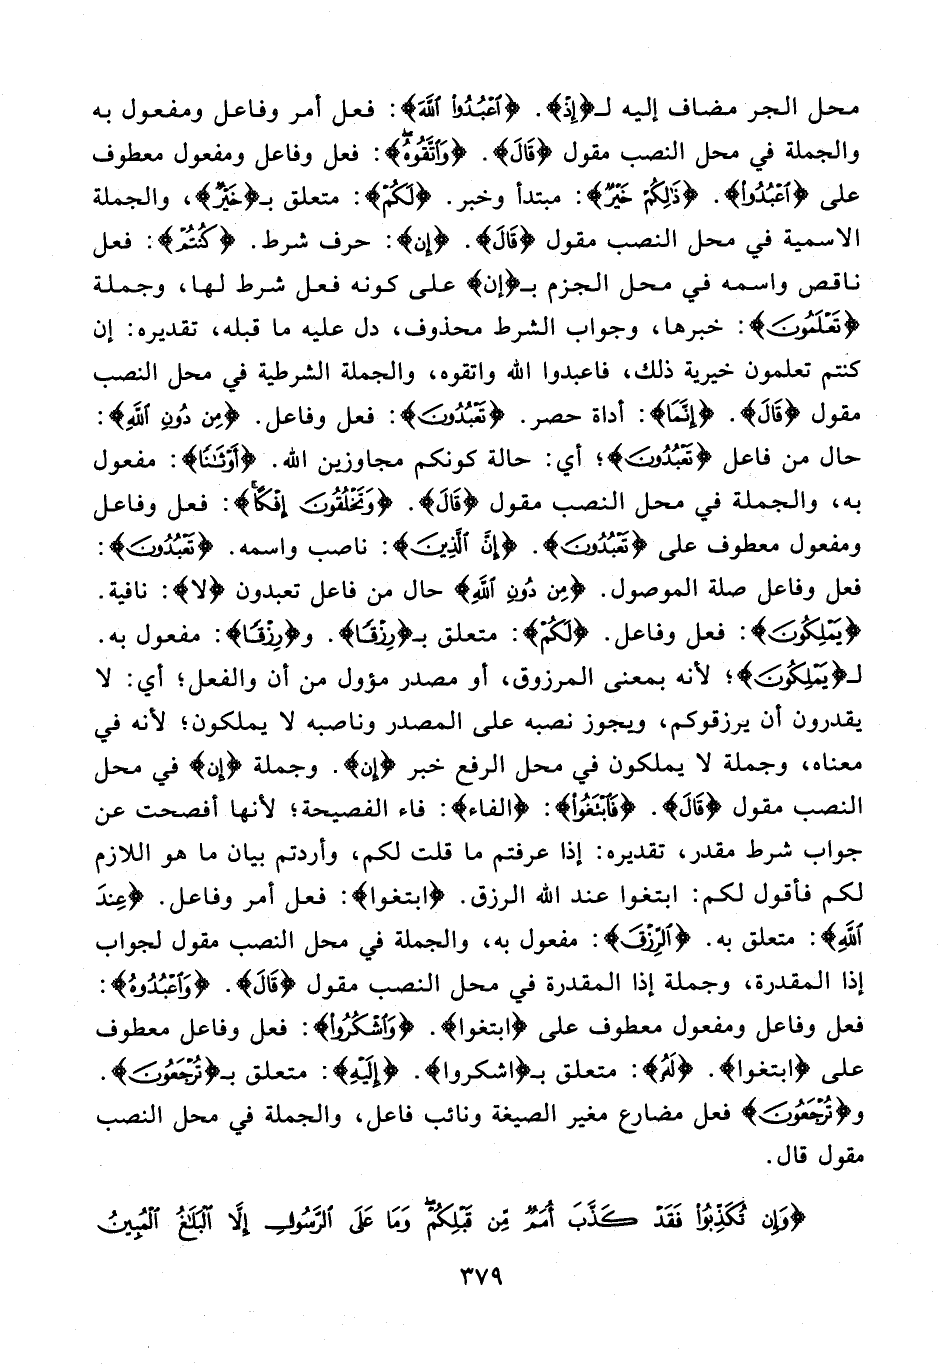 محل الجر مضاف إليه لـ﴿إِذْ﴾. ﴿ٱعْبُدُوا۟ ٱللَّهَ﴾: فعل أمر وفاعل ومفعول به
والجملة في محل النصب مقول ﴿قَالَ﴾. ﴿وَٱتَّقُوهُۖ﴾: فعل وفاعل ومفعول معطوف
على ﴿ٱعْبُدُوا۟﴾. ﴿ذَٰلِكُمْ خَيْرٌ﴾: مبتدأ وخبر. ﴿لَكُمْ﴾: متعلق بـ﴿خَيْرٌ﴾، والجملة
الاسمية في محل النصب مقول ﴿قَالَ﴾. ﴿إِن﴾: حرف شرط. ﴿كُنتُمْ﴾: فعل
ناقص واسمه في محل الجزم بـ﴿إن﴾ على كونه فعل شرط لها، وجملة
﴿تَعْلَمُونَ﴾: خبرها، وجواب الشرط محذوف، دل عليه ما قبله، تقديره: إن
كنتم تعلمون خيرية ذلك، فاعبدوا الله واتقوه، والجملة الشرطية في محل النصب
مقول ﴿قَالَ﴾. ﴿إِنَّمَا﴾: أداة حصر. ﴿تَعْبُدُونَ﴾: فعل وفاعل. ﴿مِن دُونِ ٱللَّهِ﴾:
حال من فاعل ﴿تَعْبُدُونَ﴾؛ أي: حالة كونكم مجاوزين الله. ﴿أَوْثَٰنًا﴾: مفعول
به، والجملة في محل النصب مقول ﴿قَالَ﴾. ﴿وَتَخْلُقُونَ إِفْكًاۚ﴾: فعل وفاعل
ومفعول معطوف على ﴿تَعْبُدُونَ﴾. ﴿إِنَّ ٱلَّذِينَ﴾: ناصب واسمه. ﴿تَعْبُدُونَ﴾:
فعل وفاعل صلة الموصول. ﴿مِن دُونِ ٱللَّهِ﴾ حال من فاعل تعبدون ﴿لا﴾: نافية.
﴿يَمْلِكُونَ﴾: فعل وفاعل. ﴿لَكُمْ﴾: متعلق بـ﴿رِزْقًا﴾. و﴿رِزْقًا﴾: مفعول به.
لـ﴿يَمْلِكُونَ﴾؛ لأنه بمعنى المرزوق، أو مصدر مؤول من أن والفعل؛ أي: لا
يقدرون أن يرزقوكم، ويجوز نصبه على المصدر وناصبه لا يملكون؛ لأنه في
معناه، وجملة لا يملكون في محل الرفع خبر ﴿إن﴾. وجملة ﴿إن﴾ في محل
النصب مقول ﴿قَالَ﴾. ﴿فَٱبْتَغُوا۟﴾: ﴿الفاء﴾: فاء الفصيحة؛ لأنها أفصحت عن
جواب شرط مقدر، تقديره: إذا عرفتم ما قلت لكم، وأردتم بيان ما هو اللازم
لكم فأقول لكم: ابتغوا عند الله الرزق. ﴿ابتغوا﴾: فعل أمر وفاعل. ﴿عِندَ
ٱللَّهِ﴾: متعلق به. ﴿ٱلرِّزْقَ﴾: مفعول به، والجملة في محل النصب مقول لجواب
إذا المقدرة، وجملة إذا المقدرة في محل النصب مقول ﴿قَالَ﴾. ﴿وَٱعْبُدُوهُ﴾:
فعل وفاعل ومفعول معطوف على ﴿ابتغوا﴾. ﴿وَٱشْكُرُوا۟﴾: فعل وفاعل معطوف
على ﴿ابتغوا﴾. ﴿لَهُۥ﴾: متعلق بـ﴿اشكروا﴾. ﴿إِلَيْهِ﴾: متعلق بـ﴿تُرْجَعُونَ﴾.
و﴿تُرْجَعُونَ﴾ فعل مضارع مغير الصيغة ونائب فاعل، والجملة في محل النصب
مقول قال.
﴿وَإِن تُكَذِّبُوا۟ فَقَدْ كَذَّبَ أُمَمٌ مِّن قَبْلِكُمْۖ وَمَا عَلَى ٱلرَّسُولِ إِلَّا ٱلْبَلَٰغُ ٱلْمُبِينُ
٣٧٩